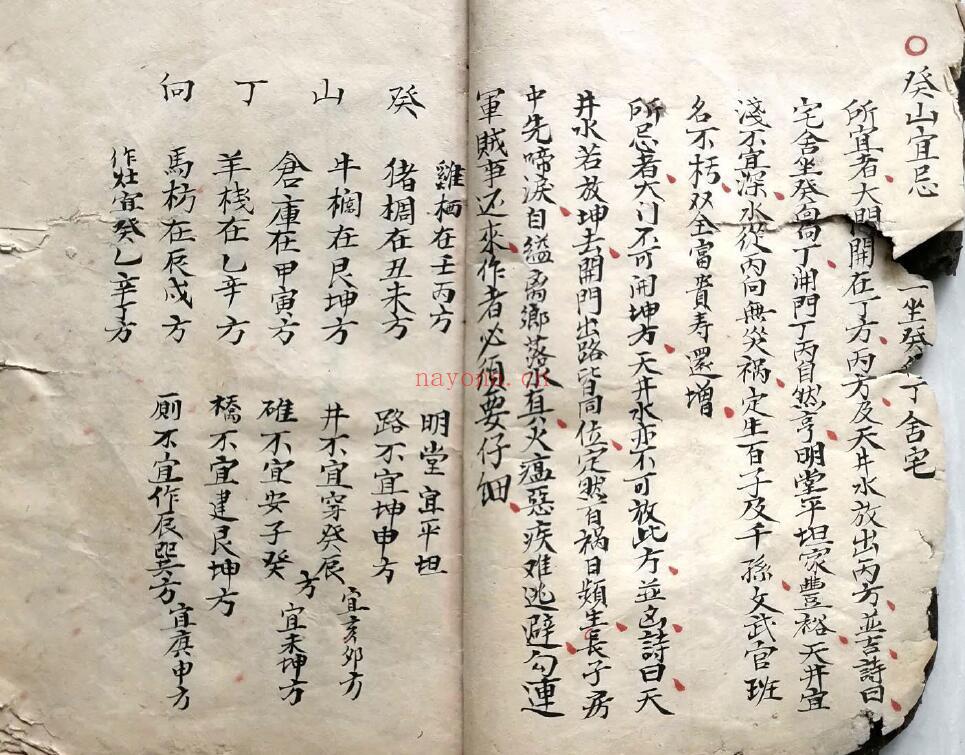 癸山宜忌
一坐癸 丁舍宅
所宜者大門開在丁方丙方及天井水放出丙方並吉詩曰
宅舍坐癸向丁開門丁丙自然亨明堂平坦家豐裕天井宜
淺不宜深水從丙向無災禍定生百子及千孫文武官班
名不朽双全富貴寿還增
所忌者大门不可開坤方天井水亦不可放此方並凶詩曰天
井水若放坤去開門出路皆同位定然百禍日頻生長子房
中先啼淚自縊离鄉落人直火瘟惡疾难逃避勾連
軍賊事还來作者必須要仔細
癸山丁向
雞栖在壬丙方
猪椆在丑未方
牛櫚在艮坤方
倉庫在甲寅方
羊棧在乙辛方
馬枋在辰戌方
作灶宜癸乙辛丁方
明堂宜平坦
路不宜坤申方
井不宜穿癸辰方 宜亥卯方
碓不宜安子癸 宜未坤方
橋不宜建艮坤方
厠不宜作辰巽方 宜庚申方
nayona.cn